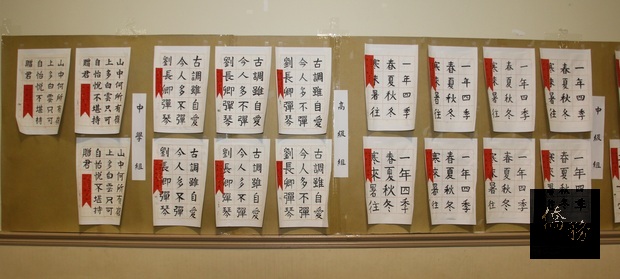 山中何所有嶺
上多白雲只可
自怡悅不堪持
贈君
山中何所有嶺
上多白雲只可
自怡悅不堪持
贈君
中學組
古調雖自愛
今人多不彈
劉長卿彈琴
古調雖自愛
今人多不彈
劉長卿彈琴
古調雖自愛
今人多不彈
劉長卿彈琴
高級組
一年四季
春夏秋冬
寒來暑往
一年四季
春夏秋冬
寒來暑往
一年四季
春夏秋冬
寒來暑往
一年四季
春夏秋冬
寒來暑往
中級組
山中何所有嶺
上多白雲只可
自怡悅不堪持
贈君
古調雖自愛
今人多不彈
劉長卿彈琴
古調雖自愛
今人多不彈
劉長卿彈琴
古調雖自愛
今人多不彈
劉長卿彈琴
一年四季
春夏秋冬
寒來暑往
一年四季
春夏秋冬
寒來暑往
一年四季
春夏秋冬
寒來暑往
一年四季
春夏秋冬
僑勝